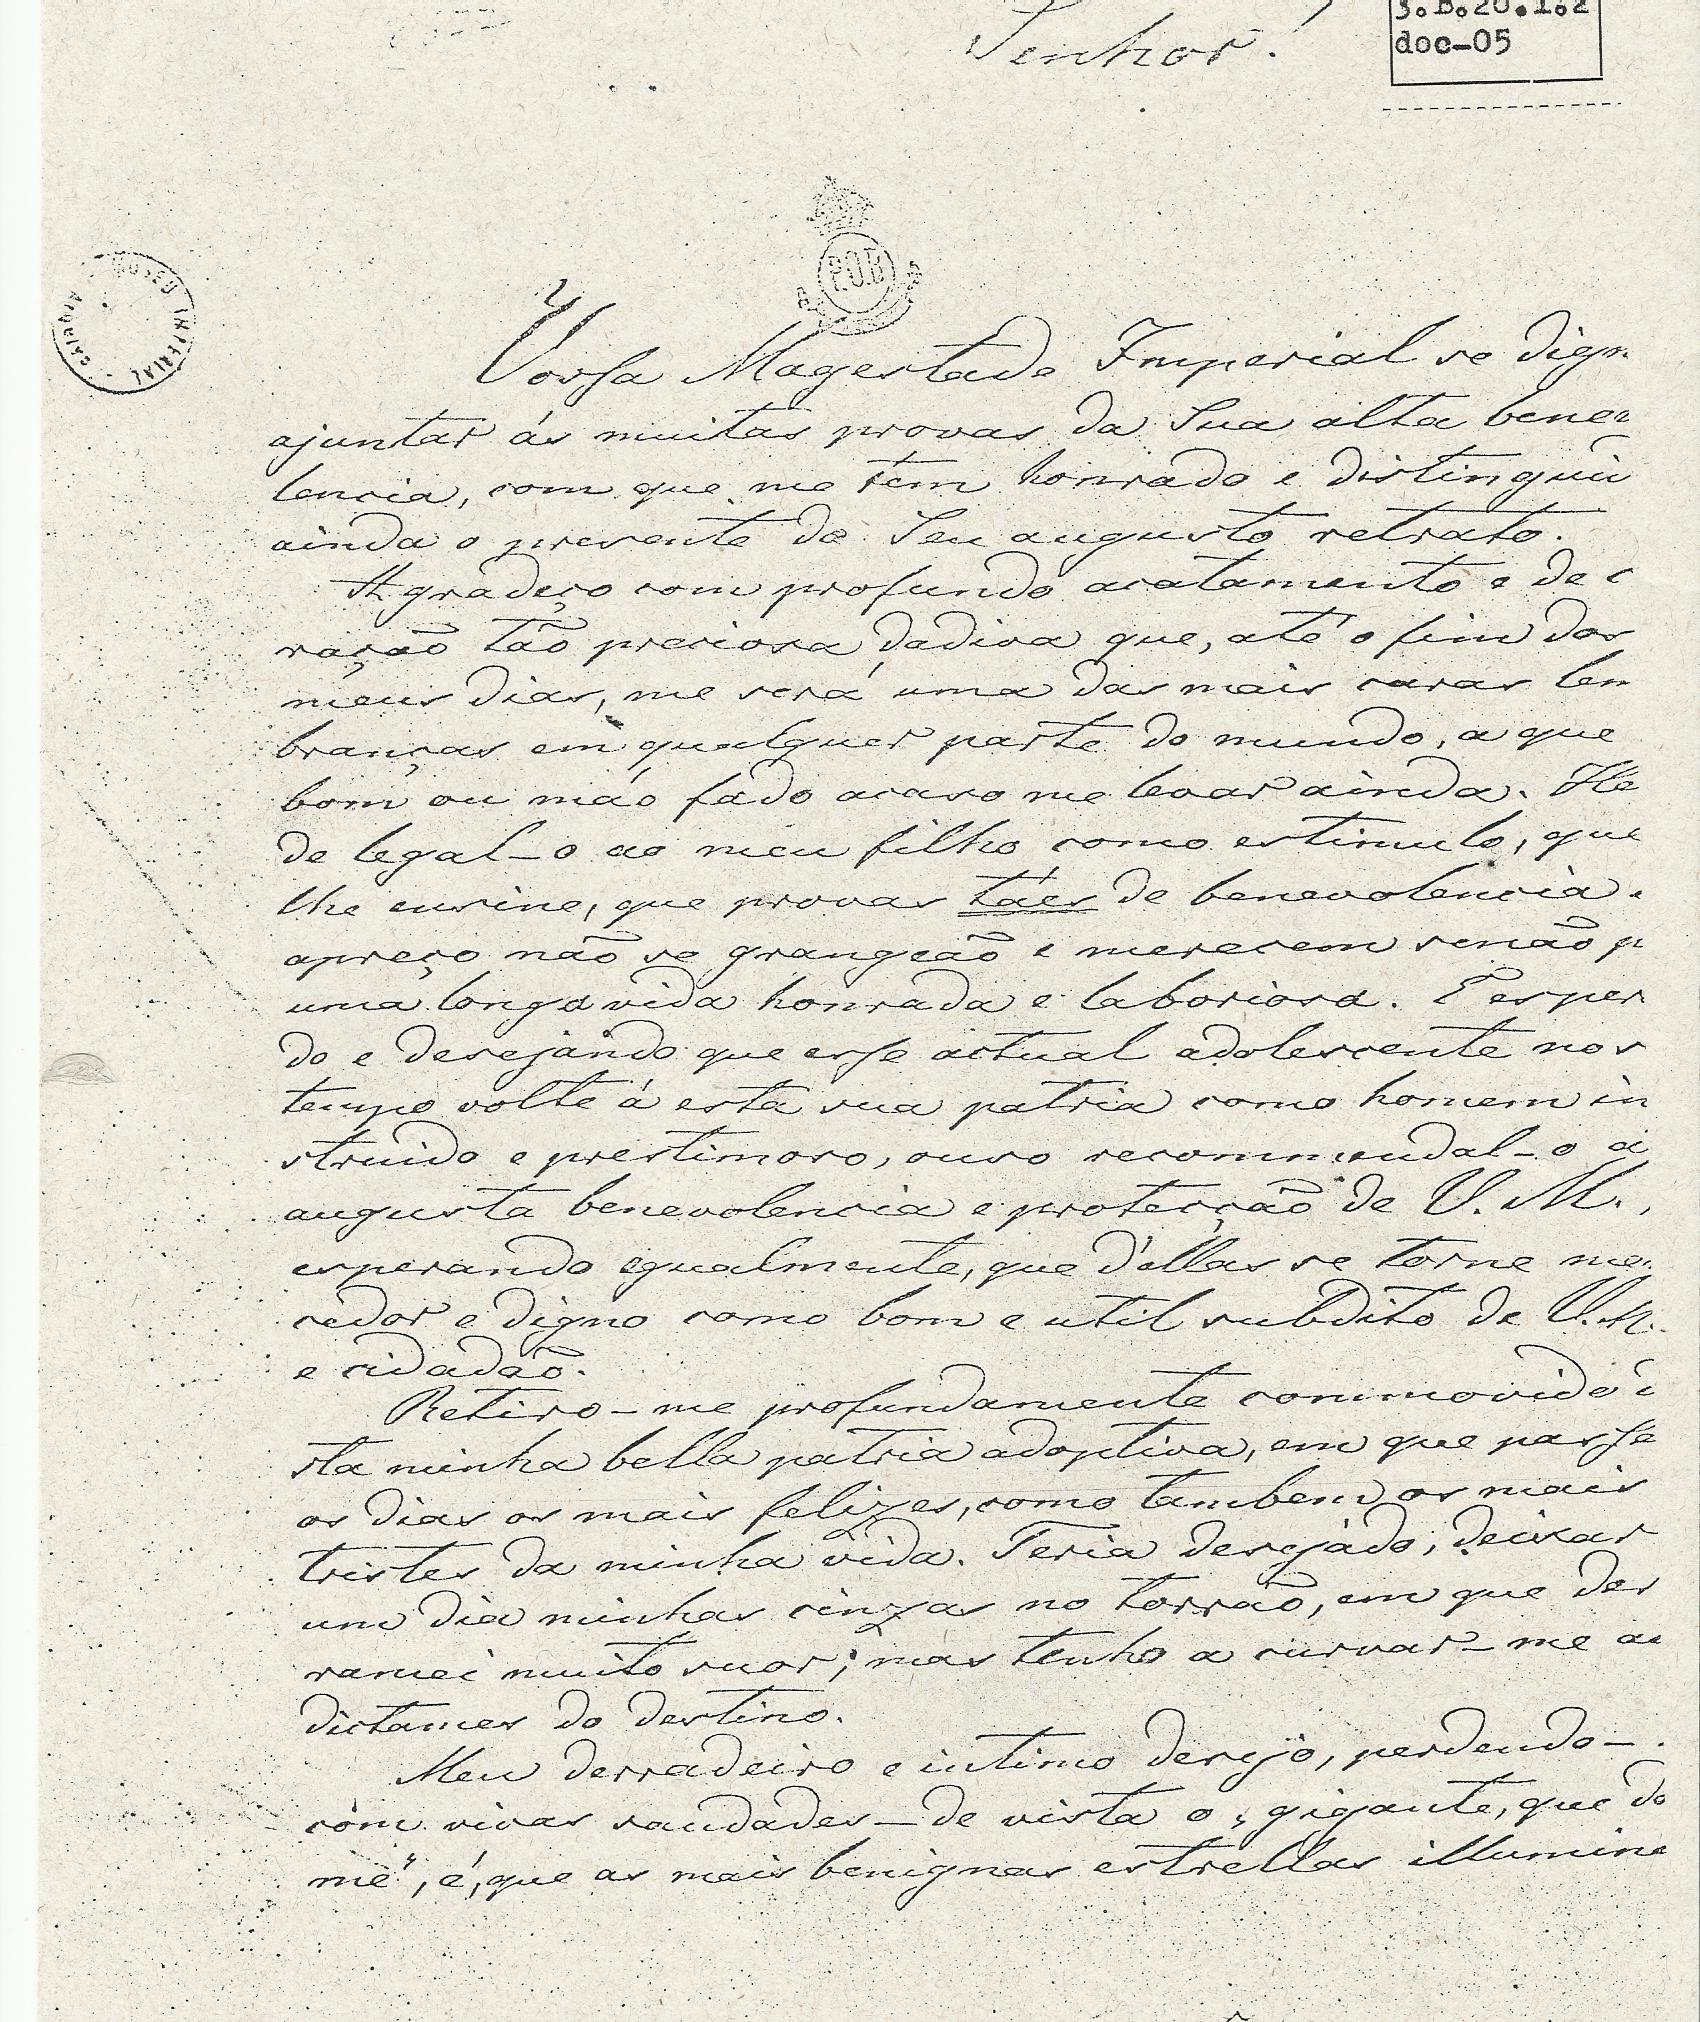 Senhor!
3.B.20.1.2
doc-05
P.O.B
MUSEU IMPERIAL
Vossa Magestade Imperial se dign
ajuntar ás muitas provas da Sua alta bene
lencia, com que me têm honrado e distingui
ainda o presente de Seu augusto retrato.
Agradeço com profundo acatamento e de c
ração tão preciosa dadiva que, até o fim dos
meus dias, me será uma das mais caras lem
branças em qualquer parte do mundo, a que
bom ou máo fado acaso me levar ainda. He
de legal-o ao meu filho como estimulo, que
lhe ensine, que provas táes de benevolencia
apreço não se grangeão e merecem senão p
uma longa vida honrada e laboriosa. E esper
do e desejando que esse actual adolescente nos
tempo volte á esta sua patria como homem in
struido e prestimoso, ouso recommendal-o á
augusta benevolencia e protecção de V. M.,
esperando egualmente, que d'ellas se torne me
cedor e digno como bom e util subdito de V. M.
e cidadão.
Retiro-me profundamente commovido
sta minha bella patria adoptiva, em que passe
os dias os mais felizes, como tambem os mais
tristes da minha vida. Teria desejado, deixar
um dia minhas cinzas no torrão, em que der
ramei muito suor; mas tenho a curvar-me ao
dictames do destino.
Meu derradeiro e intimo desejo, perdendo-
com vivas saudades - de vista o „gigante, que do
me“, é, que as mais benignas estrellas illumine